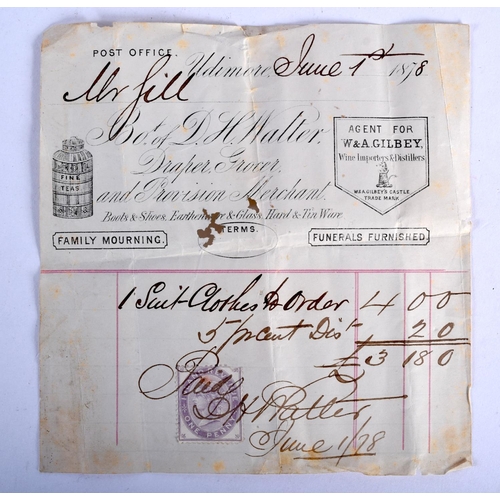 POST OFFICE.
Udimore, June 1st 1878
Mr Gill
Bot. of D. H. Walter,
Draper, Grocer,
and Provision Merchant.
Boots & Shoes, Earthenware & Glass, Hard & Tin Ware.
TERMS.
FINE
TEAS
AGENT FOR
W & A. GILBEY,
Wine Importers & Distillers
W & A GILBEY'S CASTLE
TRADE MARK
FAMILY MOURNING.
FUNERALS FURNISHED.
1 Suit Clothes to Order 4 0 0
5 pr cent Dist 2 0
£3 18 0
Paid
D H Walter
June 1/78
ONE PENNY